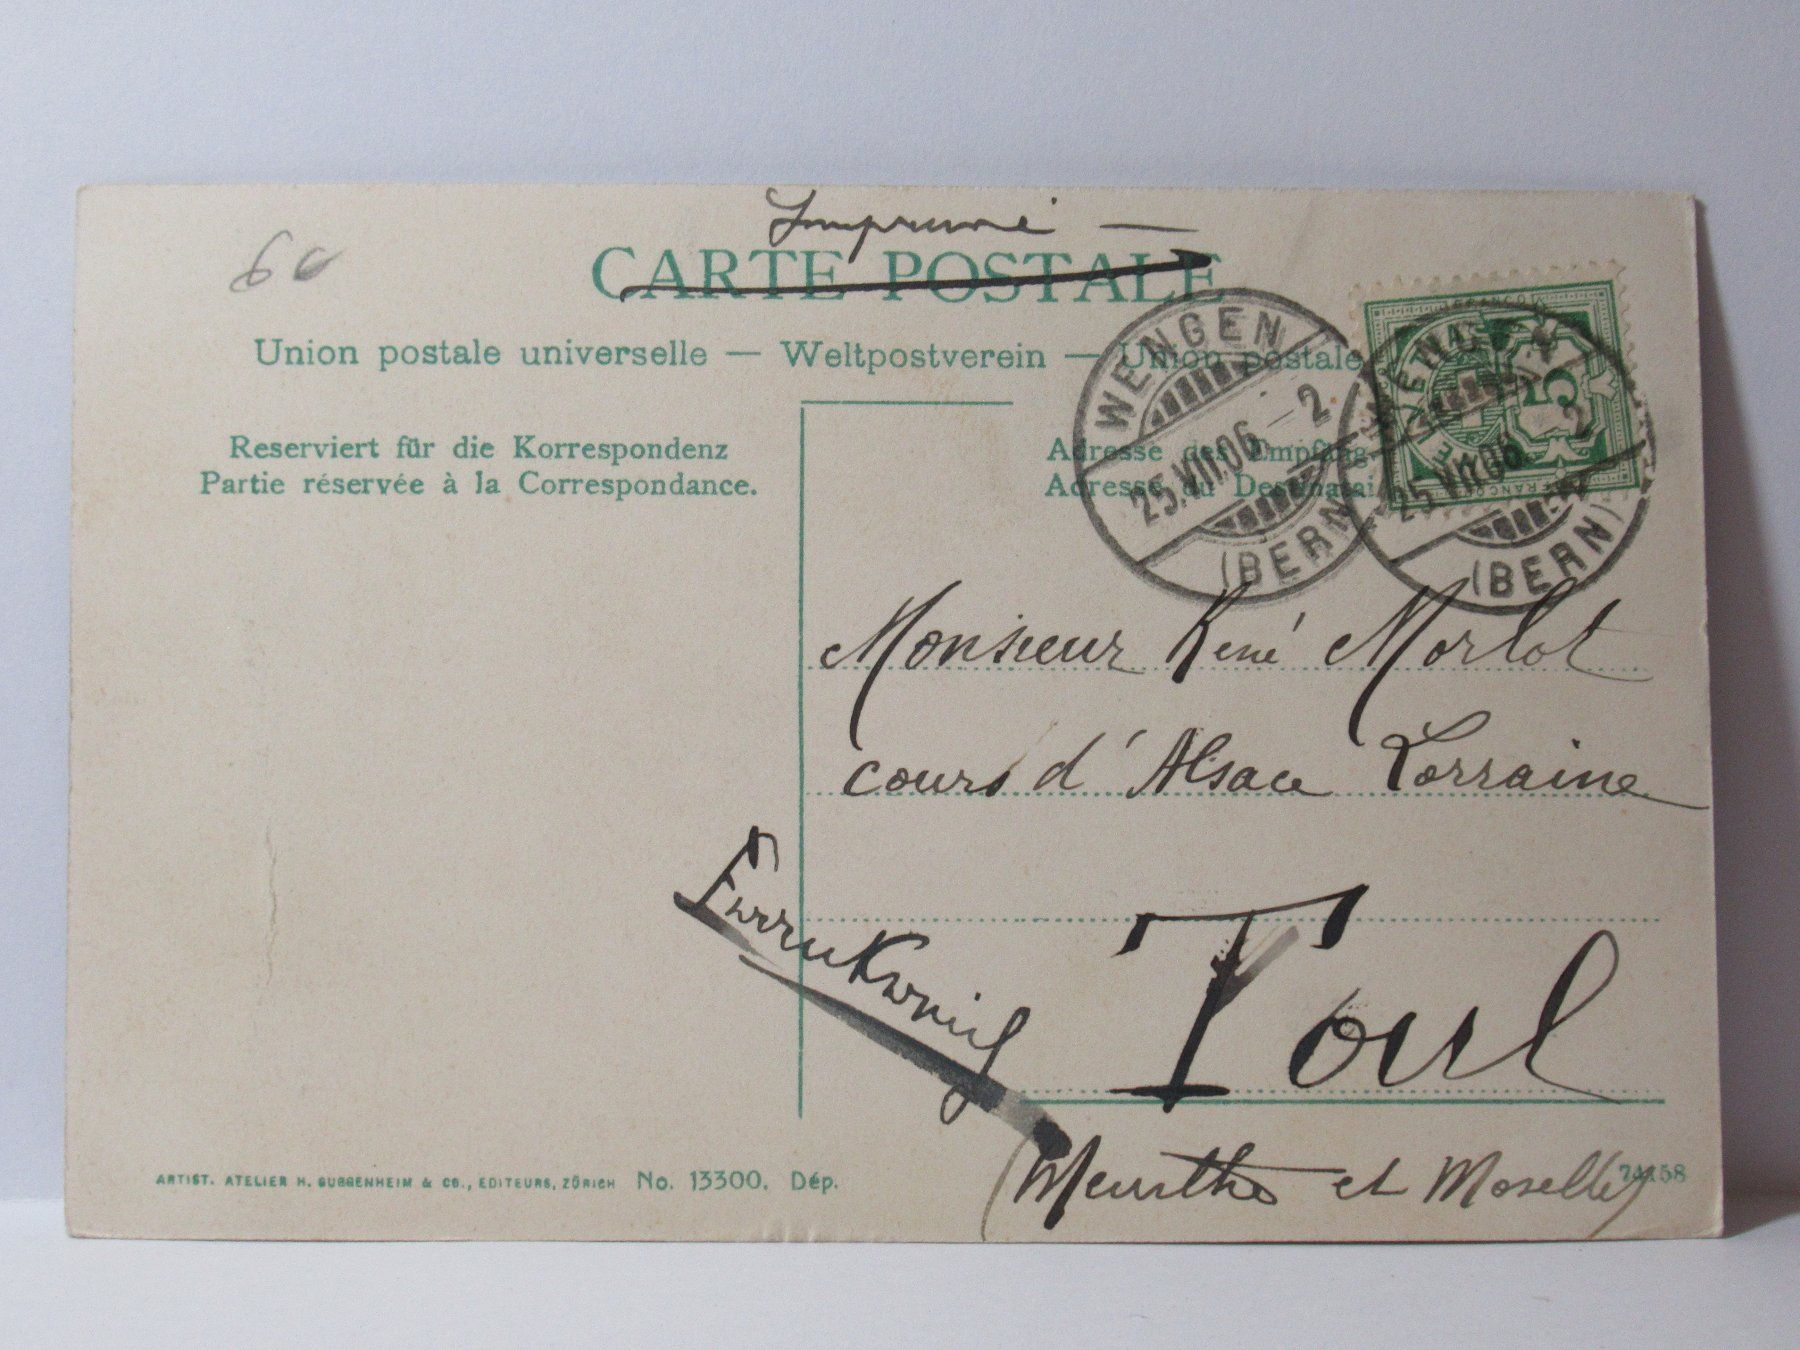 Imprimé —
60
CARTE POSTALE
Union postale universelle — Weltpostverein — Union postale
Reserviert für die Korrespondenz
Partie réservée à la Correspondance.
Adresse des Empfäng
Adresse du Destinatai
WENGEN
25.VII.06 – 2
(BERN)
HELVETIA
FRANCO
5
25.VII.06
2
(BERN)
Monsieur René Morlot
cours d'Alsace Lorraine
Toul
(Meurthe et Moselle)
ARTIST. ATELIER H. GUGGENHEIM & CO., EDITEURS, ZÜRICH No. 13300. Dép.
74158